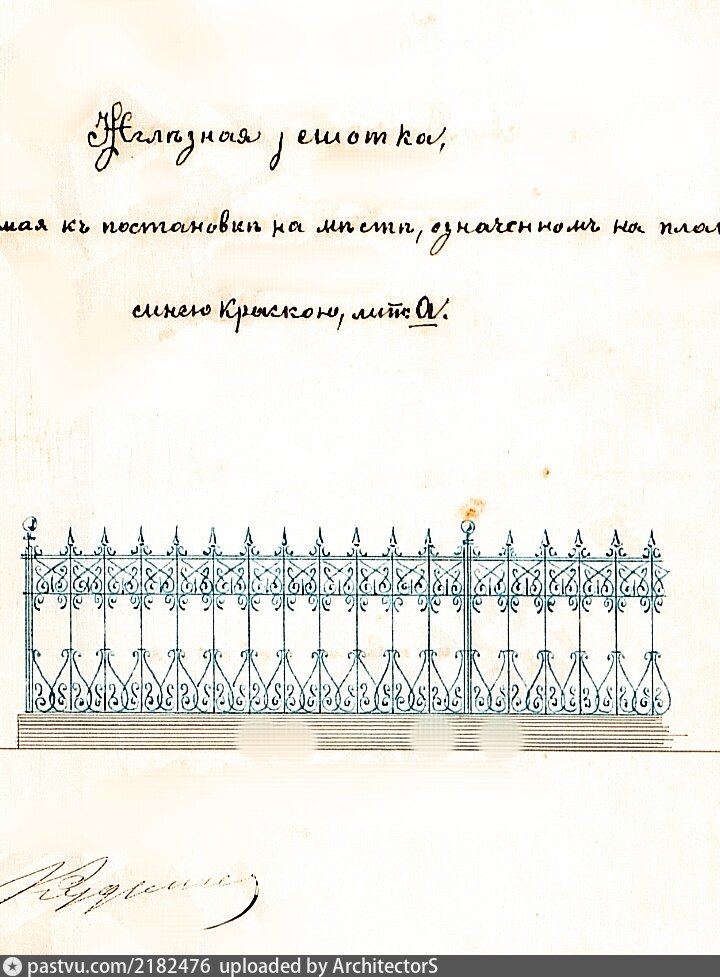 Желѣзная решотка,
мая къ постановкѣ на мѣстѣ, означенномъ на план
синею краскою, лит: А.
pastvu.com/2182476 uploaded by ArchitectorS